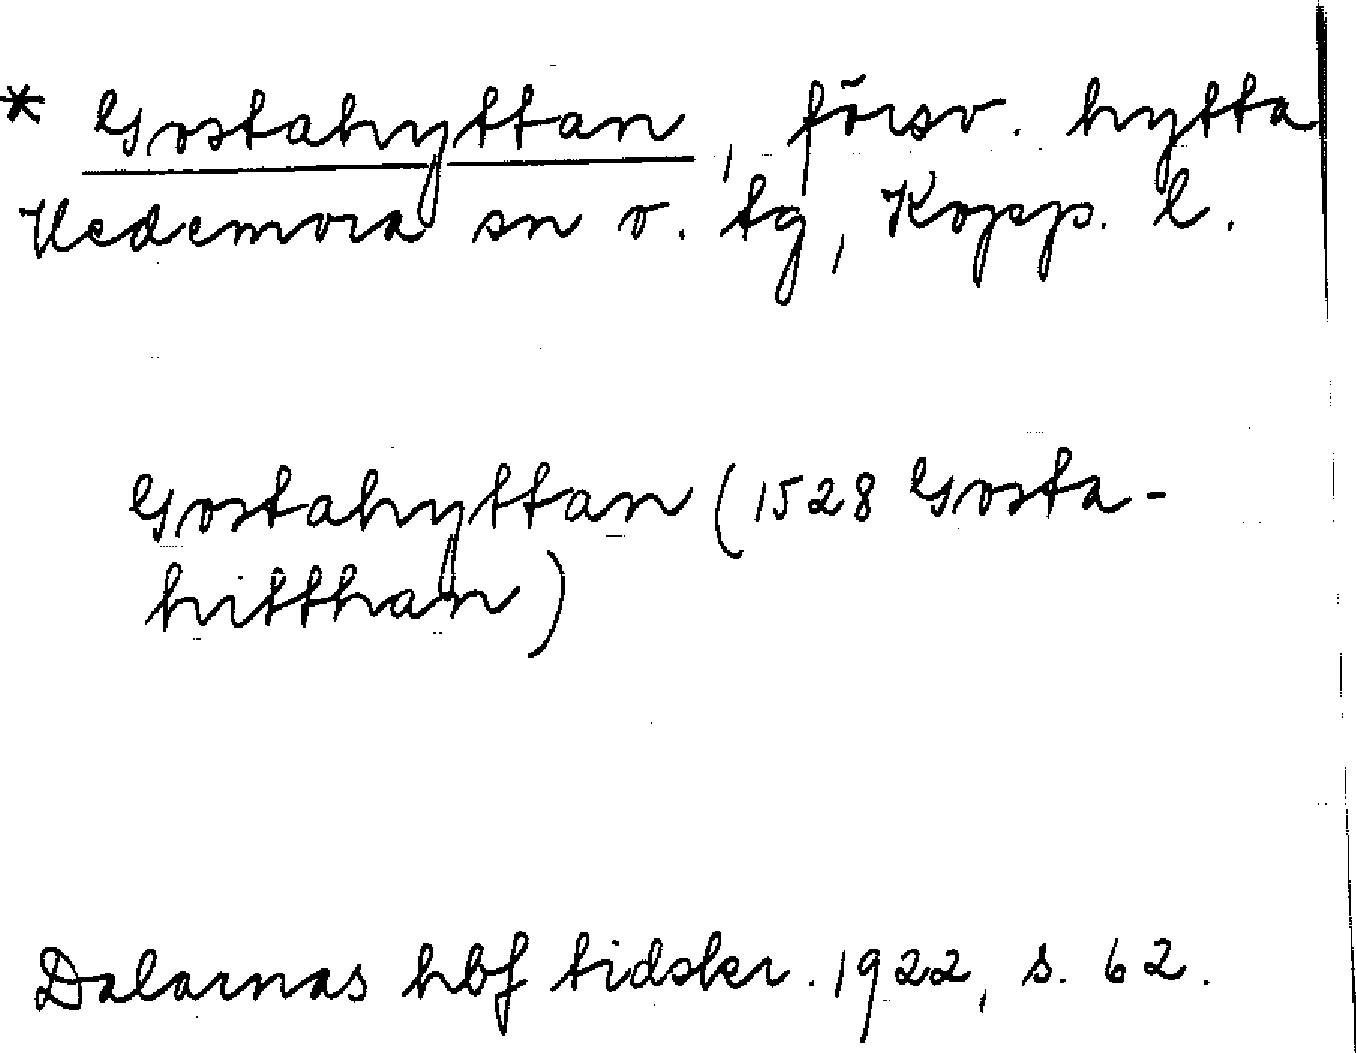 * Gostahyttan, försv. hytta
Hedemora sn o. tg, Kopp. l.
Gostahyttan (1528 Gosta-
hitthan)
Dalarnas hbf tidskr. 1922, s. 62.